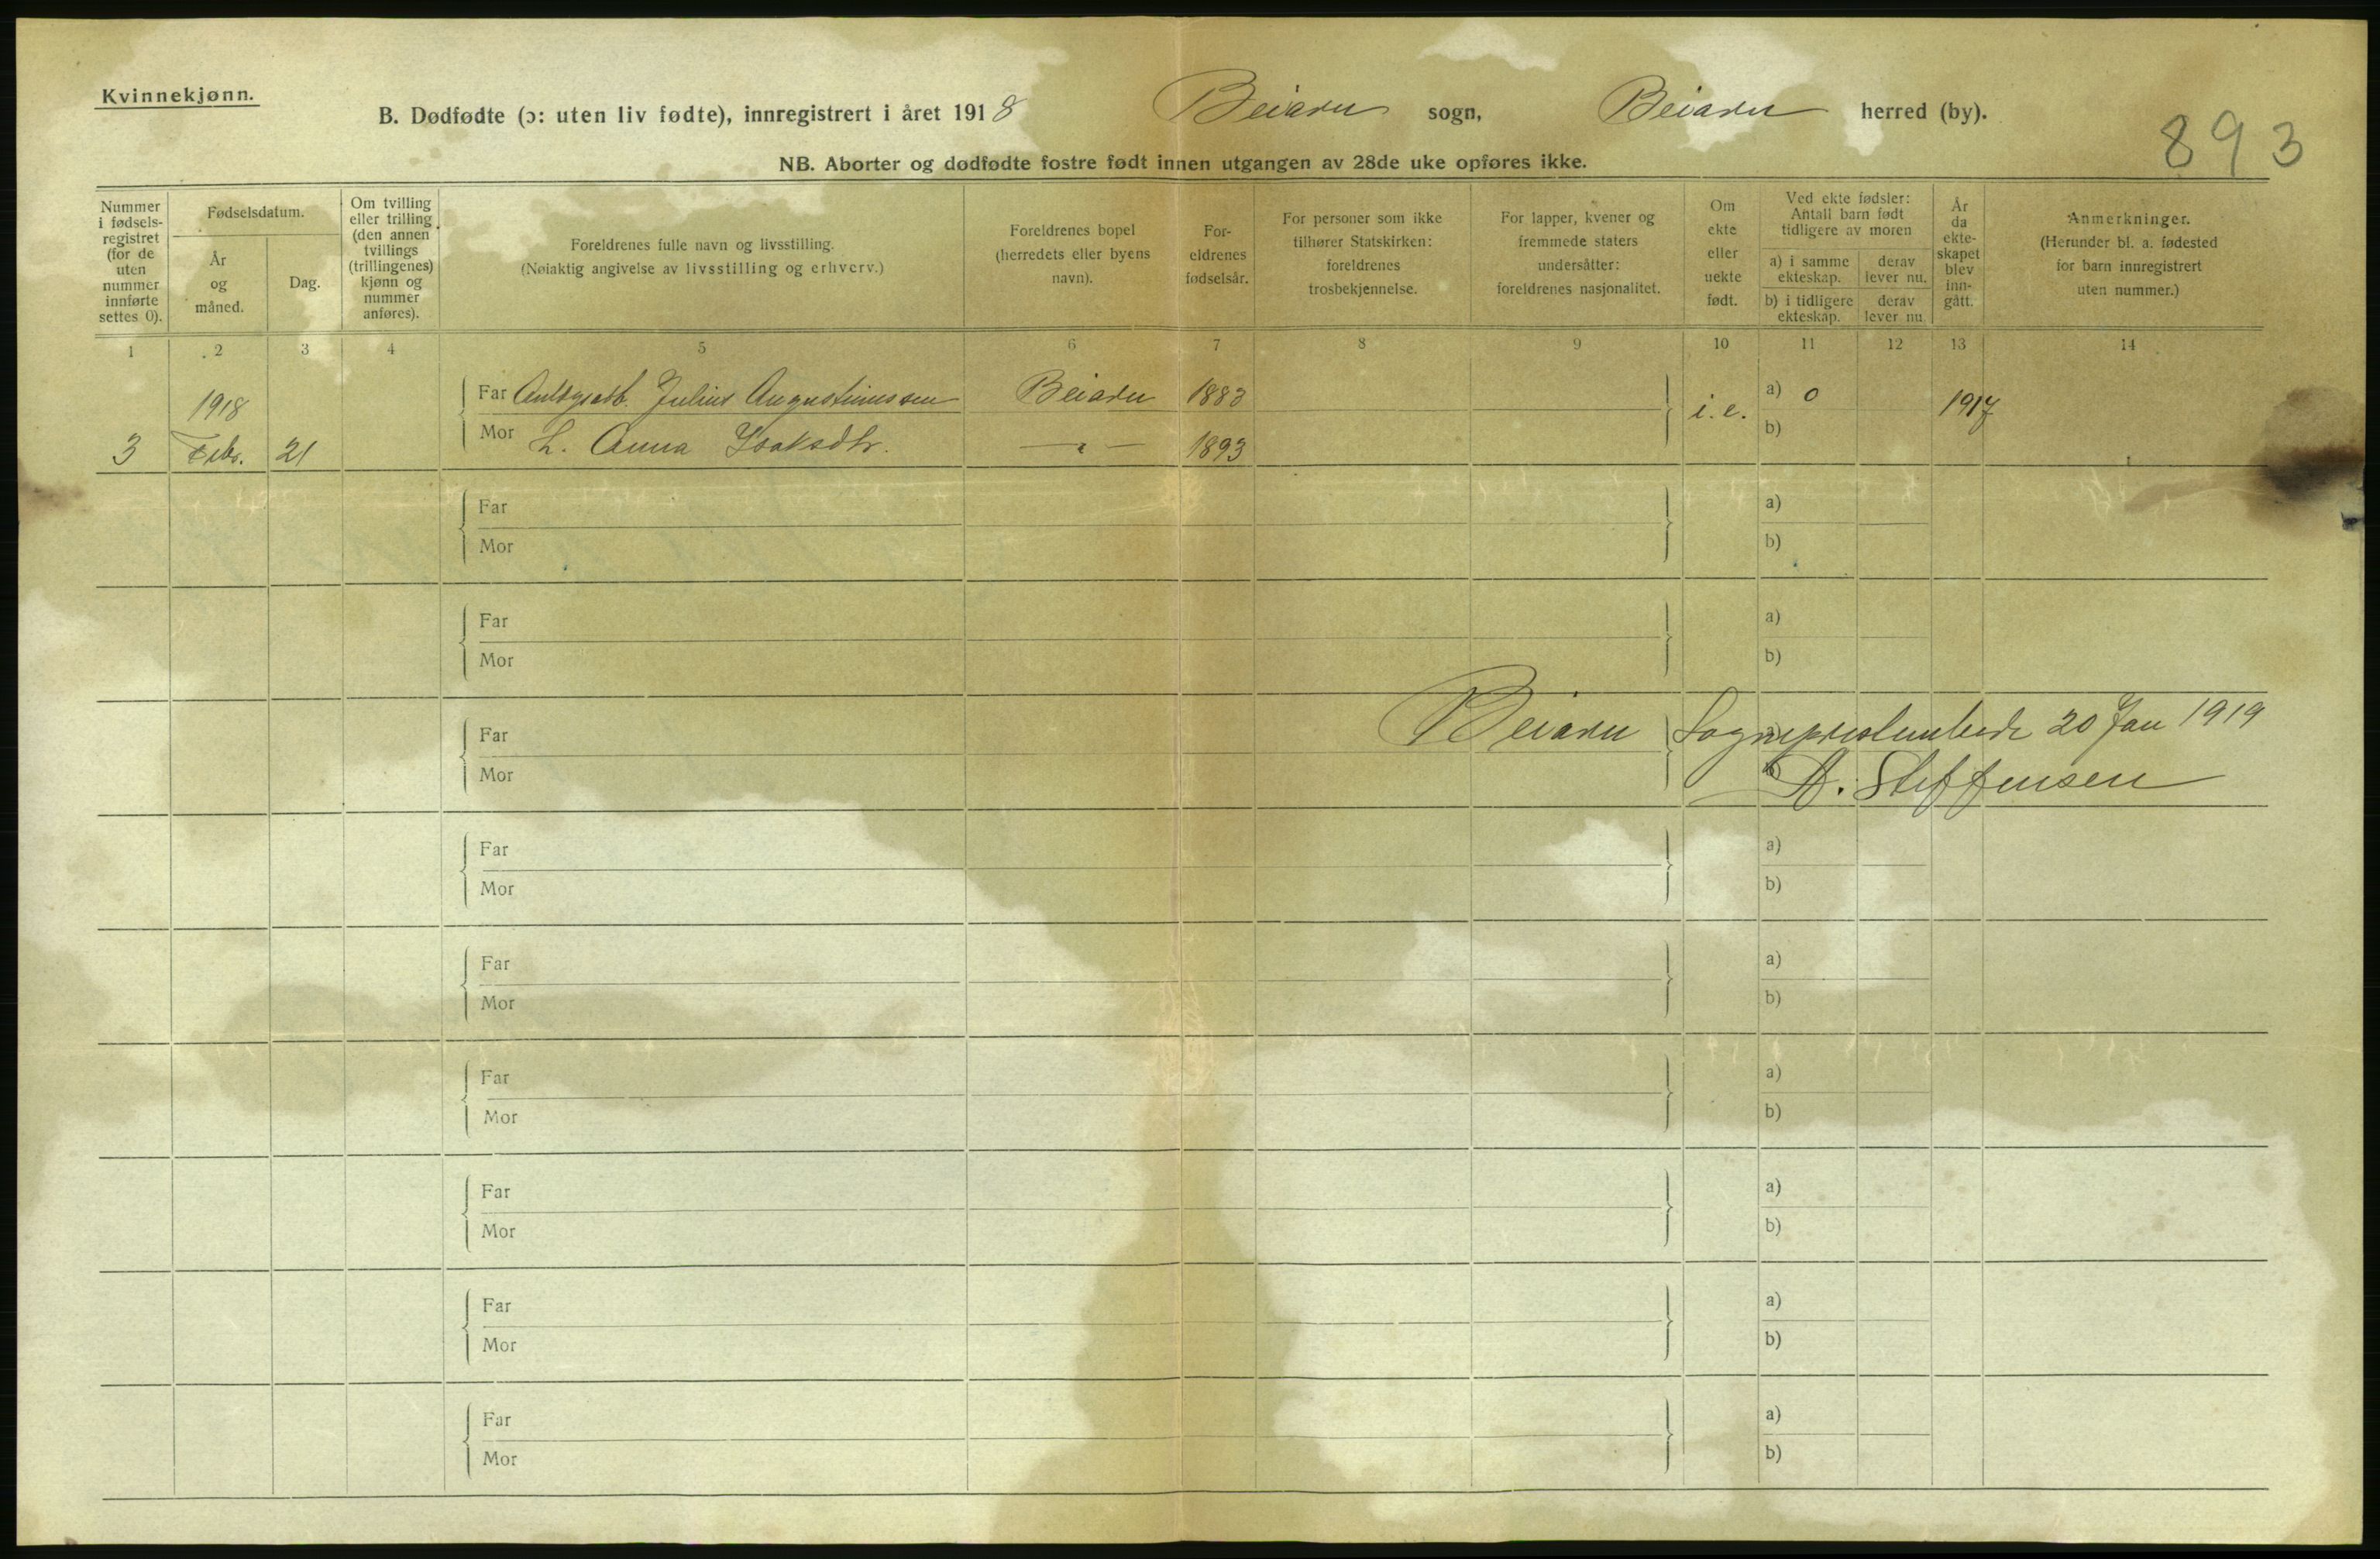 Kvinnekjønn.
B. Dødfødte (ɔ: uten liv fødte), innregistrert i året 1918 Beiarn sogn, Beiarn herred (by).
893
NB. Aborter og dødfødte fostre født innen utgangen av 28de uke opføres ikke.
Nummer i fødsels-registret (for de uten nummer innførte settes 0).
Fødselsdatum.
År og måned.
Dag.
Om tvilling eller trilling (den annen tvillings (trillingenes) kjønn og nummer anføres).
Foreldrenes fulle navn og livsstilling.
(Nøiaktig angivelse av livsstilling og erhverv.)
Foreldrenes bopel (herredets eller byens navn).
For-eldrenes fødselsår.
For personer som ikke tilhører Statskirken: foreldrenes trosbekjennelse.
For lapper, kvener og fremmede staters undersåtter: foreldrenes nasjonalitet.
Om ekte eller uekte født.
Ved ekte fødsler: Antall barn født tidligere av moren
a) i samme ekteskap.
derav lever nu.
b) i tidligere ekteskap.
derav lever nu.
År da ekte-skapet blev inn-gått.
Anmerkninger.
(Herunder bl. a. fødested for barn innregistrert uten nummer.)
1 2 3 4 5 6 7 8 9 10 11 12 13 14
1918 Far Julius Augustinussen Beiarn 1883 i. e. a) 0 1917
3 Febr. 21 Mor h. Anna Isaksdtr. — " — 1893 b)
Far a)
Mor b)
Far a)
Mor b)
Far Beiarn Sogneprestembede 20 Jan 1919
Mor b) A. Steffensen
Far a)
Mor b)
Far a)
Mor b)
Far a)
Mor b)
Far a)
Mor b)
Far a)
Mor b)
Far a)
Mor b)